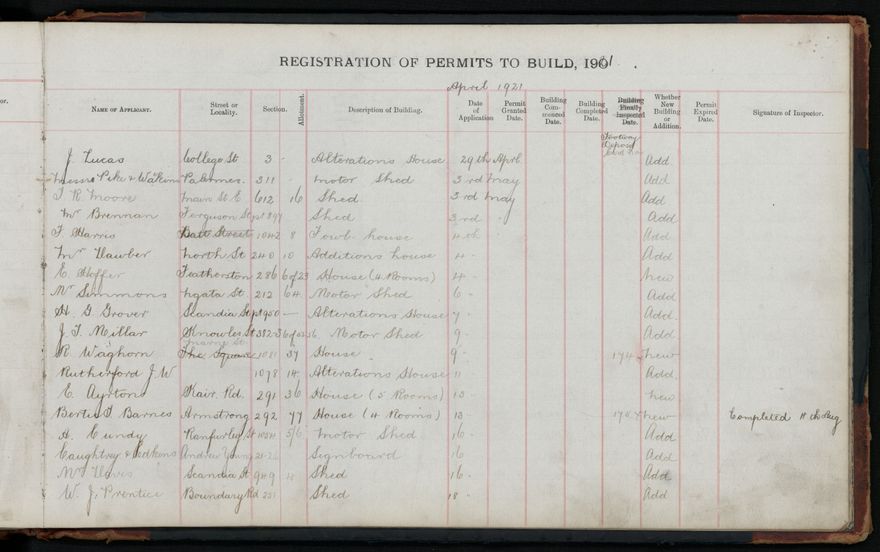 or.
REGISTRATION OF PERMITS TO BUILD, 1901.
April 1921
NAME OF APPLICANT. Street or Locality. Section. Allotment. Description of Building. Date of Application Permit Granted Date. Building Commenced Date. Building Completed Date. Building Finally Inspected Date. Whether New Building or Addition. Permit Expired Date. Signature of Inspector.
Footway Deposit
J. Lucas College St 3 - Alterations House 29th April Add
Messrs Pike & Watkins 311 - Motor Shed 3rd May Add
J R Moore Main St E 612 16 Shed 3rd May Add
Mr Brennan Ferguson St pt 897 Shed 3rd " Add
F Harris Batt Street 1042 8 Fowl house 4th Add
Mr Hawber North St 240 10 Additions house 4 - Add
C Hoffer Featherston 286 6 of 23 House (4 Rooms) 4 - New
Mr Simmons Ngata St. 212 64 Motor Shed 6 - Add
H. G. Grover Scandia St pt 900 — Alterations House 7 - Add.
J. T. Millar Knowles St 382-3 Motor Shed 9 - Add
R. Waghorn The Square 1081 37 House 9 - 174 New
Rutherford J. W 1078 14 Alterations House 11 Add.
E. Ayrton Kair. Rd. 291 36 House (5 Rooms) 13 - New
Bertie S Barnes Armstrong 292 77 House (4 Rooms) 13 - New Completed 11th Aug
H. Cundy Ranfurley St 5/6 Motor Shed 16 - Add
Andrew Young 21-26 Signboard 16 Add
Mr Scandia St 949 4 Shed 16 Add
W. J. Prentice Boundary Rd 251 Shed 18 - Add